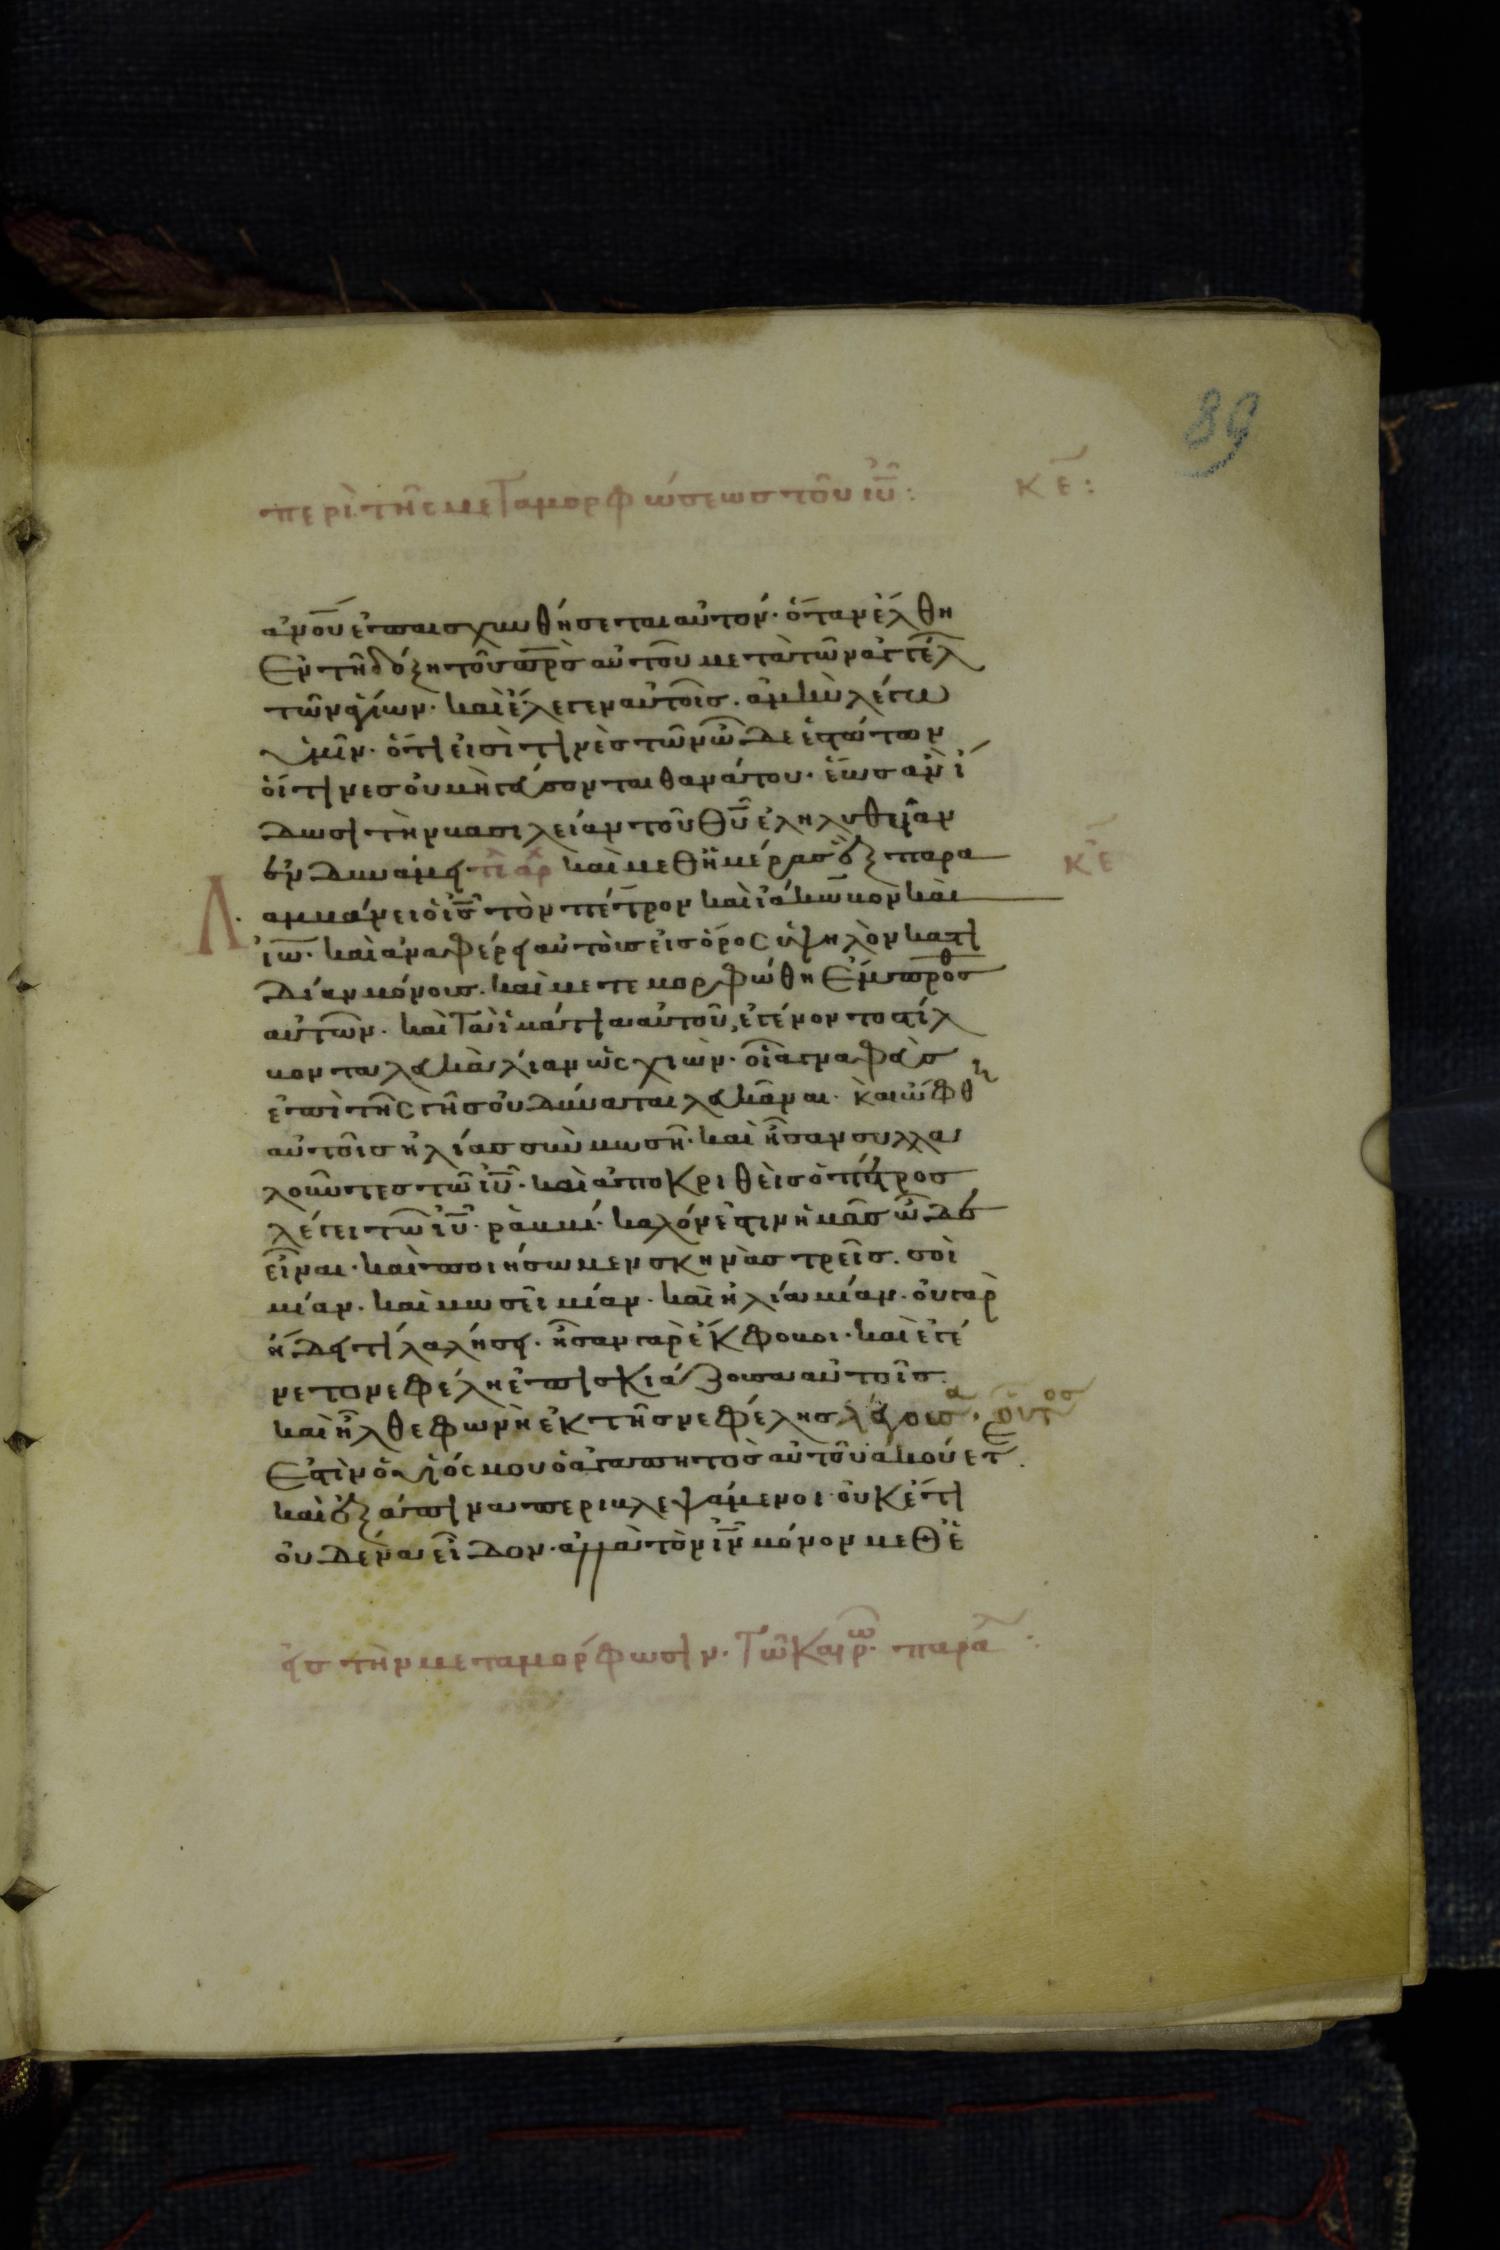 89
περὶ τῆς μεταμορφώσεως τοῦ ἰῦ: κε:
ἀνου ἐπαισχυνθήσεται αὐτόν· ὅταν ἔλθη
ἐν τῆ δόξη τοῦ πρσ αὐτοῦ μετὰ τῶν ἀγγέλ
τῶν ἁγίων· καὶ ἔλεγεν αὐτοῖς· ἀμὴν λέγω
ὑμῖν· ὅτι εἰσὶ τινὲς τῶν ὧδε ἑστώτων
οἵτινες οὐ μὴ γεύσονται θανάτου· ἕως ἂν ἴ
δωσι τὴν βασιλείαν τοῦ θῦ ἐληλυθυῖαν
ἐν δυνάμει· καὶ μεθ ἡμέρας ἓξ παρα κε
λαμβάνει ὁ ἰς τὸν πέτρον καὶ ἰάκωβον καὶ
ἰω· καὶ ἀναφέρει αὐτοὺς εἰς ὄρος ὑψηλὸν κατι
δίαν μόνους· καὶ μετεμορφώθη ἔμπροσθ
αὐτῶν· καὶ τὰ ἱμάτια αὐτοῦ, ἐγένοντο στίλ
βοντα λευκὰ λίαν ὡς χιὼν· οἷα γναφεὺς
ἐπὶ τῆς γῆς οὐ δύναται λευκᾶναι· καὶ ὤφθη
αὐτοῖς ἠλίας σὺν μωσῆ· καὶ ἦσαν συλλα
λοῦντες τῶ ἰῦ· καὶ ἀποκριθεὶς ὁ πέτρος
λέγει τῶ ἰῦ· ῥαββί· καλόν ἐστιν ἡμᾶς ὧδε
εἶναι· καὶ ποιήσωμεν σκηνὰς τρεῖς· σοὶ
μίαν· καὶ μωσεῖ μίαν· καὶ ἠλία μίαν· οὐ γὰρ
ἤδει τί λαλήσει· ἦσαν γὰρ ἔκφοβοι· καὶ ἐγέ
νετο νεφέλη ἐπισκιάζουσα αὐτοῖς·
καὶ ἦλθε φωνὴ ἐκ τῆς νεφέλης λέγουσα· οὗτος
ἐστὶν ὁ υἱός μου ὁ ἀγαπητὸς αὐτοῦ ἀκούετ.
καὶ ἐξάπινα περιβλεψάμενοι οὐκέτι
οὐδένα εἶδον· ἀλλὰ τὸν ἰν μόνον μεθ ἑ
εἰς τὴν μεταμόρφωσιν· τῶ καιρω·